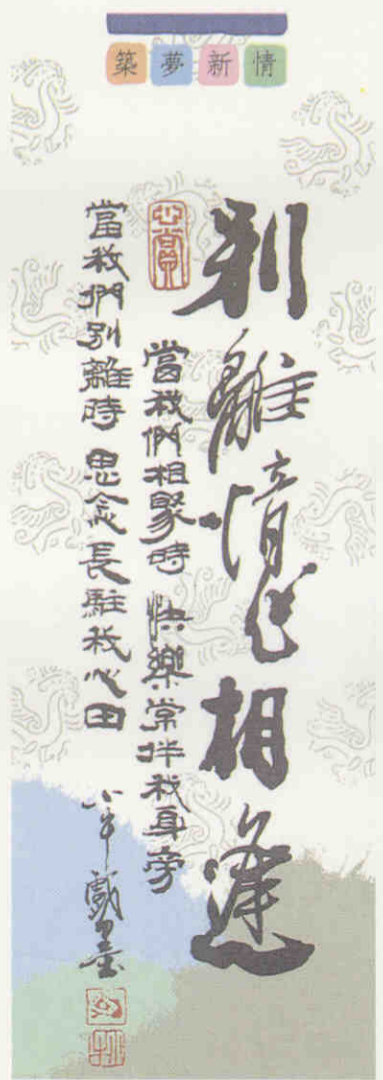 築夢新情
別離情相逢
心賞
當我們相聚時 快樂常伴我身旁
當我們別離時 思念長駐我心田
戲墨